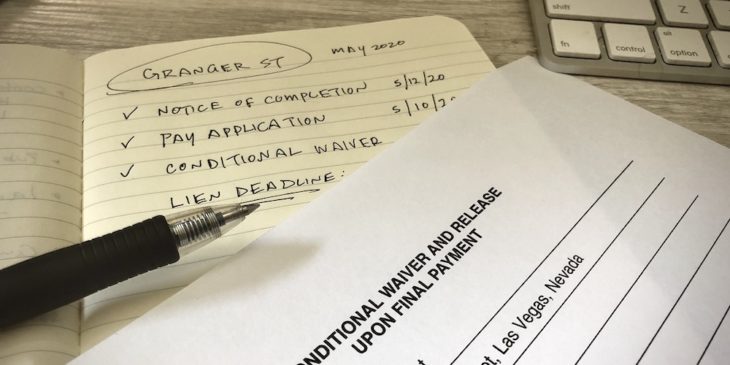 GRANGER ST MAY 2020
✓ NOTICE OF COMPLETION 5/12/20
✓ PAY APPLICATION 5/10/2
✓ CONDITIONAL WAIVER
LIEN DEADLINE:
ONDITIONAL WAIVER AND RELEASE
UPON FINAL PAYMENT
t, Las Vegas, Nevada
Z
fn
control
alt
option
command